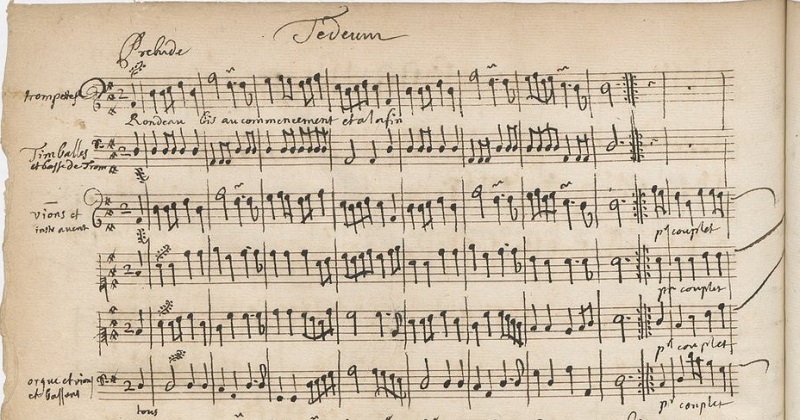 Tedeum
Prelude
trompettes
Rondeau bis au commencement et a la fin
Timballes
et basse de Trom
vions et
instruments
pr couplet
pr couplet
pr couplet
orgue et vions
et bassons
tous
pr couplet